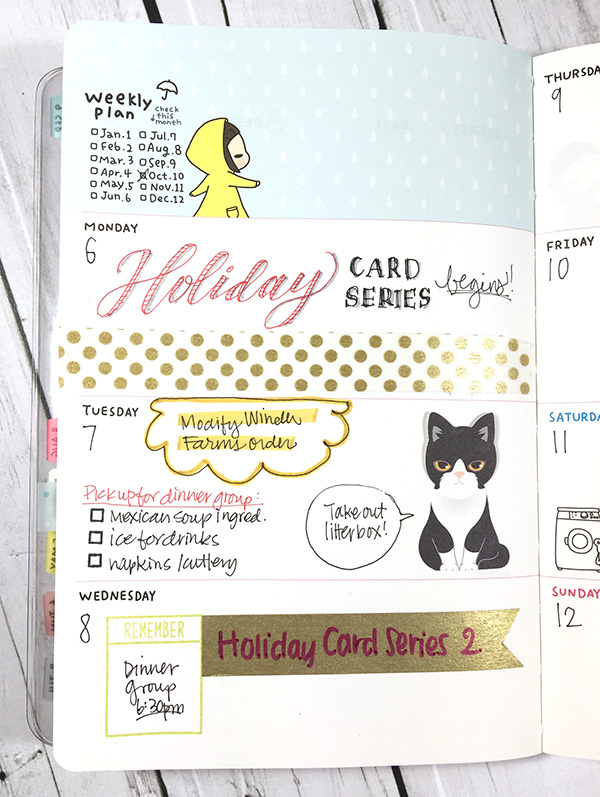 weekly plan
check this month
Jan.1 Jul.7
Feb.2 Aug.8
Mar.3 Sep.9
Apr.4 Oct.10
May.5 Nov.11
Jun.6 Dec.12
MONDAY
6
Holiday CARD SERIES begins!!
TUESDAY
7
Modify Winder
Farms order
Pick up for dinner group:
Mexican soup ingred.
ice for drinks
napkins / cutlery
Take out
litterbox!
WEDNESDAY
8
REMEMBER
Dinner
group
6:30pm
Holiday Card Series 2
THURSDAY
9
FRIDAY
10
SATURDA
11
SUNDAY
12